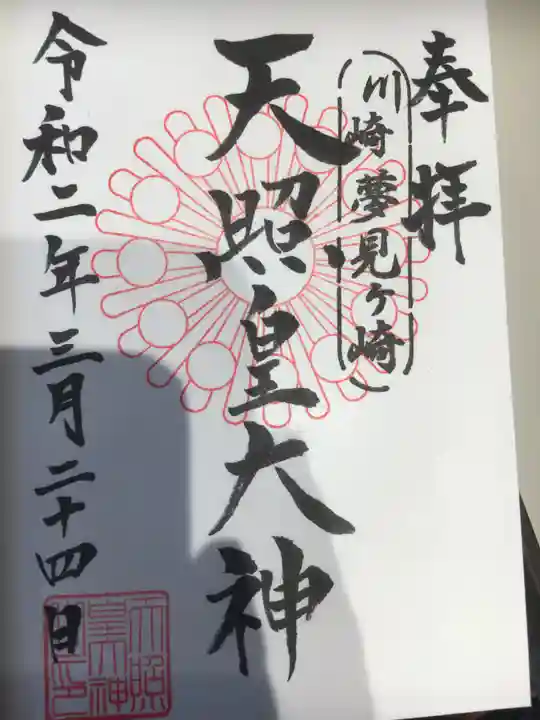 奉拝
(川崎夢見ヶ崎)
天照皇大神
令和二年三月二十四日
天照
皇大神